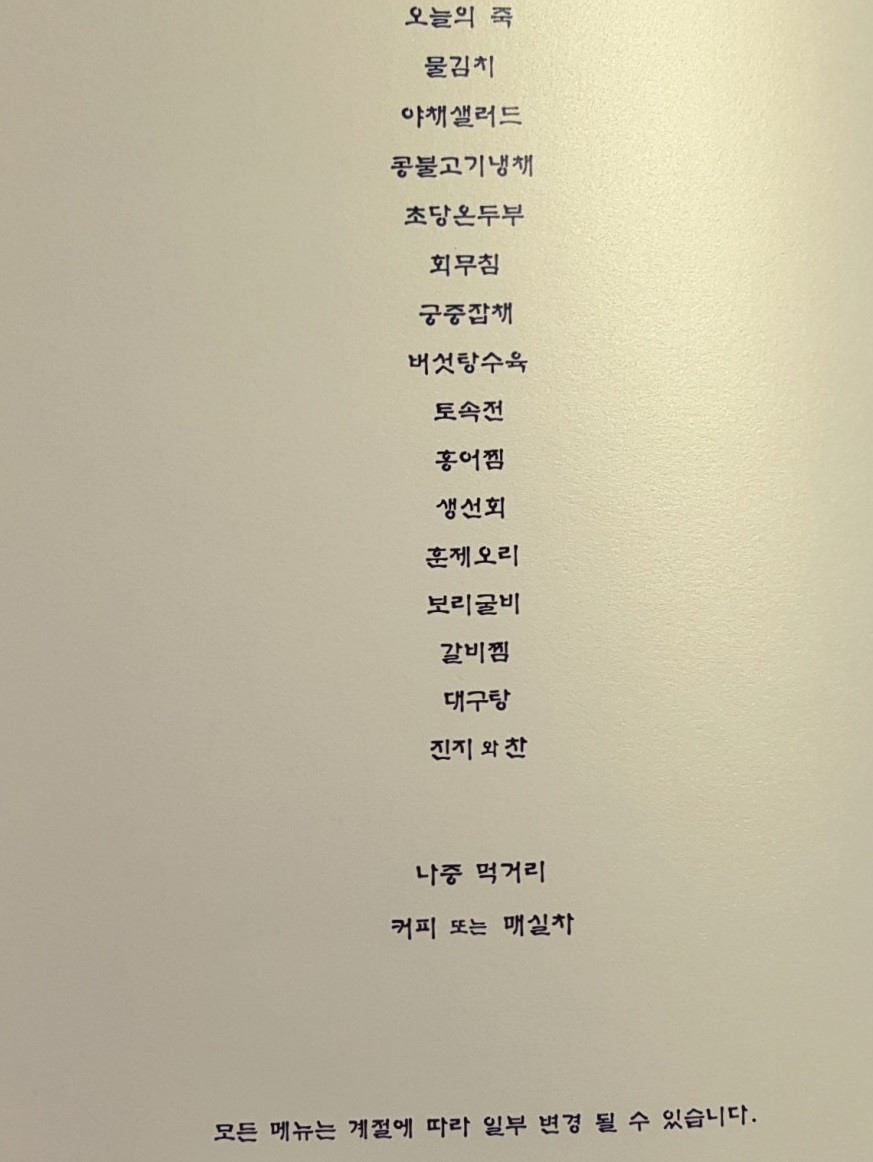 오늘의 죽
물김치
야채샐러드
콩불고기냉채
초당온두부
회무침
궁중잡채
버섯탕수육
토속전
홍어찜
생선회
훈제오리
보리굴비
갈비찜
대구탕
진지 와 찬
나중 먹거리
커피 또는 매실차
모든 메뉴는 계절에 따라 일부 변경 될 수 있습니다.